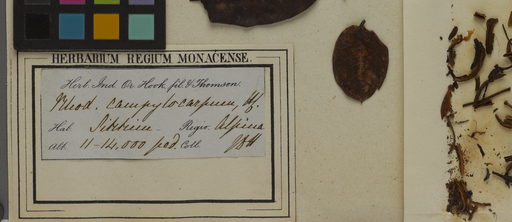 HERBARIUM REGIUM MONACENSE.
Herb. Ind. Or. Hook. fil. & Thomson.
Rhod. campylocarpum, Hf.
Hab. Sikkim — Regio. Alpina
Alt. 11-14,000 ped. Coll. JDH